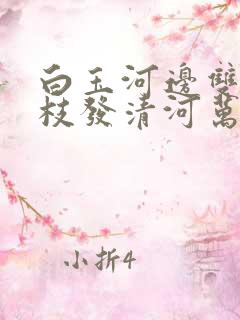 白玉河邊雙
枝發清河萬
小折4